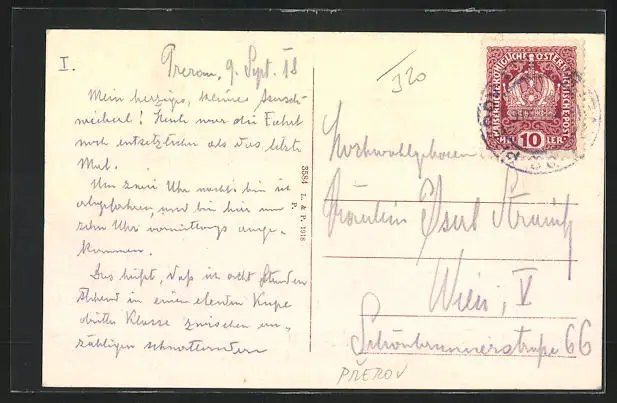 I.
Prerau, 9. Sept. 18
Mein herziges, kleines
! Heute war die Fahrt
noch entsetzlicher als das letzte
Mal.
Um zwei Uhr nachts bin ich
abgefahren, und bin hier um
zehn Uhr vormittags ange-
kommen.
Das heißt, daß ich acht Stunden
stehend in einem elenden Kupe
dritter Klasse zwischen un-
zähligen schnatternden
3584 L. & P. 1918
P.
320
KAISERLICHE KÖNIGLICHE ÖSTERREICHISCHE POST
10
HELLER
Hochwohlgeboren
Fräulein
Wien, V
Schönbrunnerstraße 66
PŘEROV